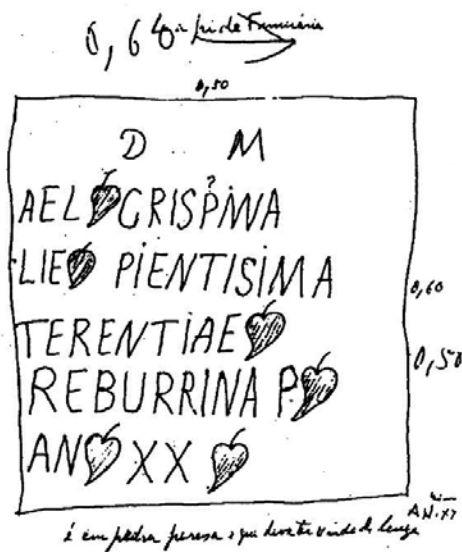 0,60
0,50
D M
AEL CRISPINA
LIE PIENTISIMA
0,60
TERENTIAE
0,50
REBURRINA P
AN XX
AN.XX
é em pedra porosa e que deve ter vindo de longe